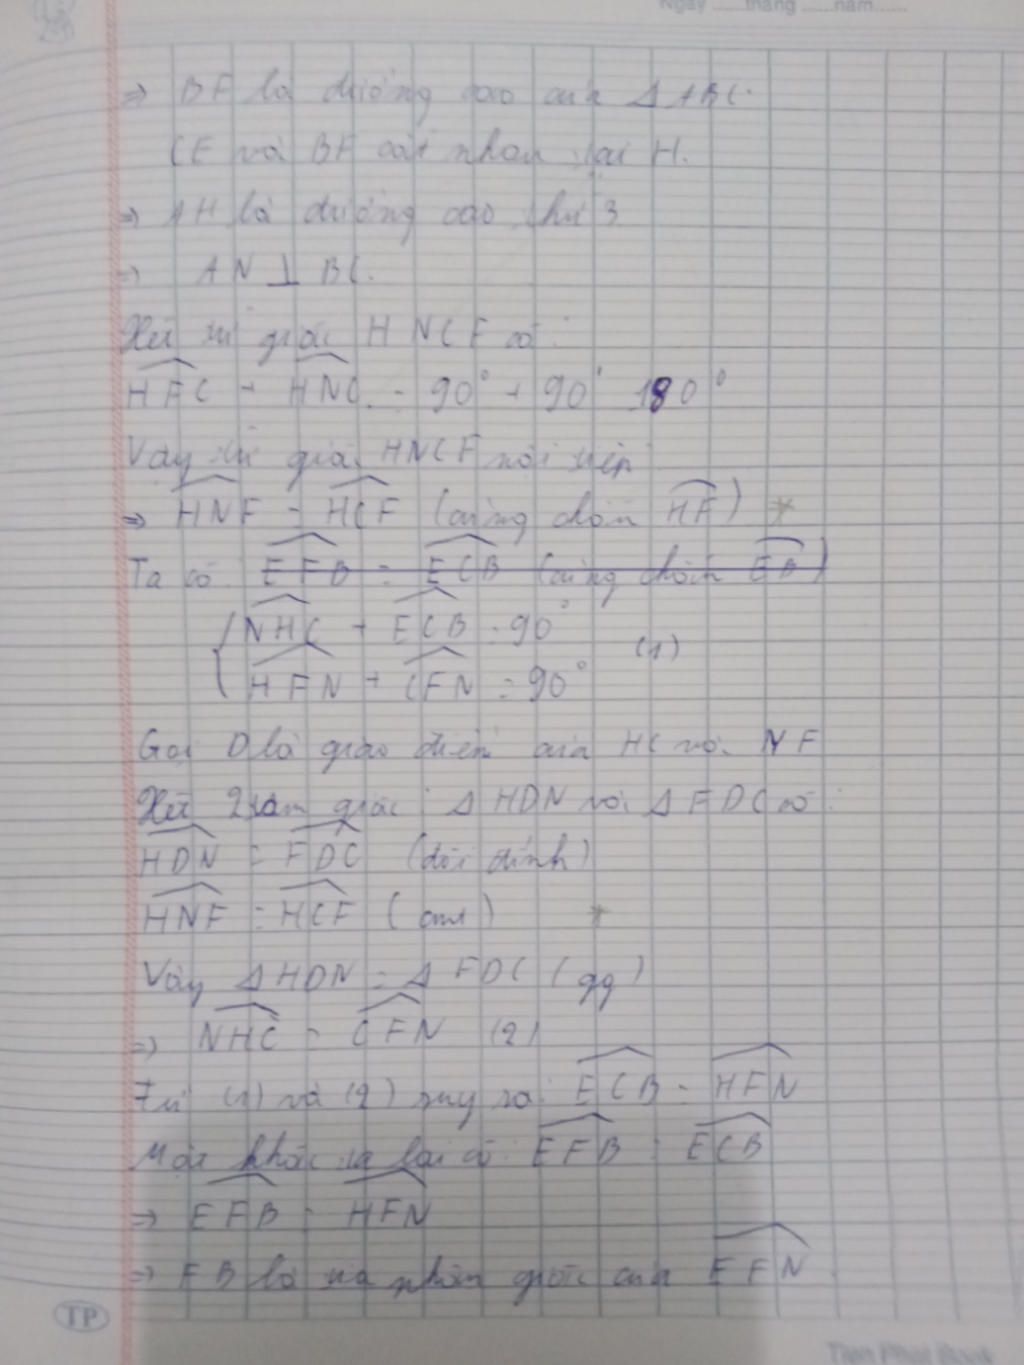 Ngày ......tháng ......năm......
⇒ BF là đường cao của Δ ABC.
CE và BF cắt nhau tại H.
⇒ AH là đường cao thứ 3
⇒ AN ⊥ BC.
Xét tứ giác HNCF có:
HFC + HNC = 90° + 90° 180°
Vậy tứ giác HNCF nội tiếp
⇒ HNF = HCF (cùng chắn HF) *
Ta có: EFB = ECB (cùng chắn EB)
NHC + ECB = 90°
HFN + CFN = 90° (1)
Gọi D là giao điểm của HC và NF
Xét 2 tam giác: Δ HDN và Δ FDC có:
HDN = FDC (đối đỉnh)
HNF = HCF (cmt) *
Vậy Δ HDN = Δ FDC (gg)
⇒ NHC = CFN (2)
Từ (1) và (2) suy ra: ECB = HFN
Mặt khác ta lại có: EFB = ECB
⇒ EFB = HFN
⇒ FB là tia phân giác của EFN
TP